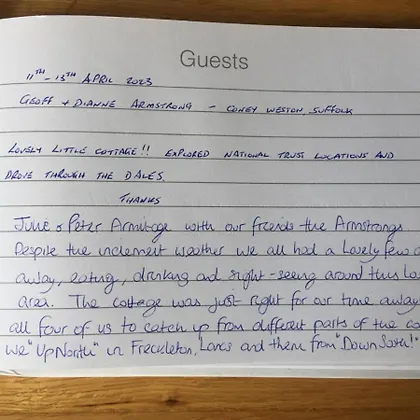 Guests
11TH - 13TH APRIL 2023
GEOFF + DIANNE ARMSTRONG - CONEY WESTON, SUFFOLK
LOVELY LITTLE COTTAGE!! EXPLORED NATIONAL TRUST LOCATIONS AND
DROVE THROUGH THE DALES.
THANKS
June & Peter Armitage with our friends the Armstrongs
Despite the inclement weather we all had a lovely few
away, eating, drinking and sight-seeing around this
area. The cottage was just right for our time away
all four of us to catch up from different parts of the
we "Up North" in Freckleton, Lancs and them from "Down South!"